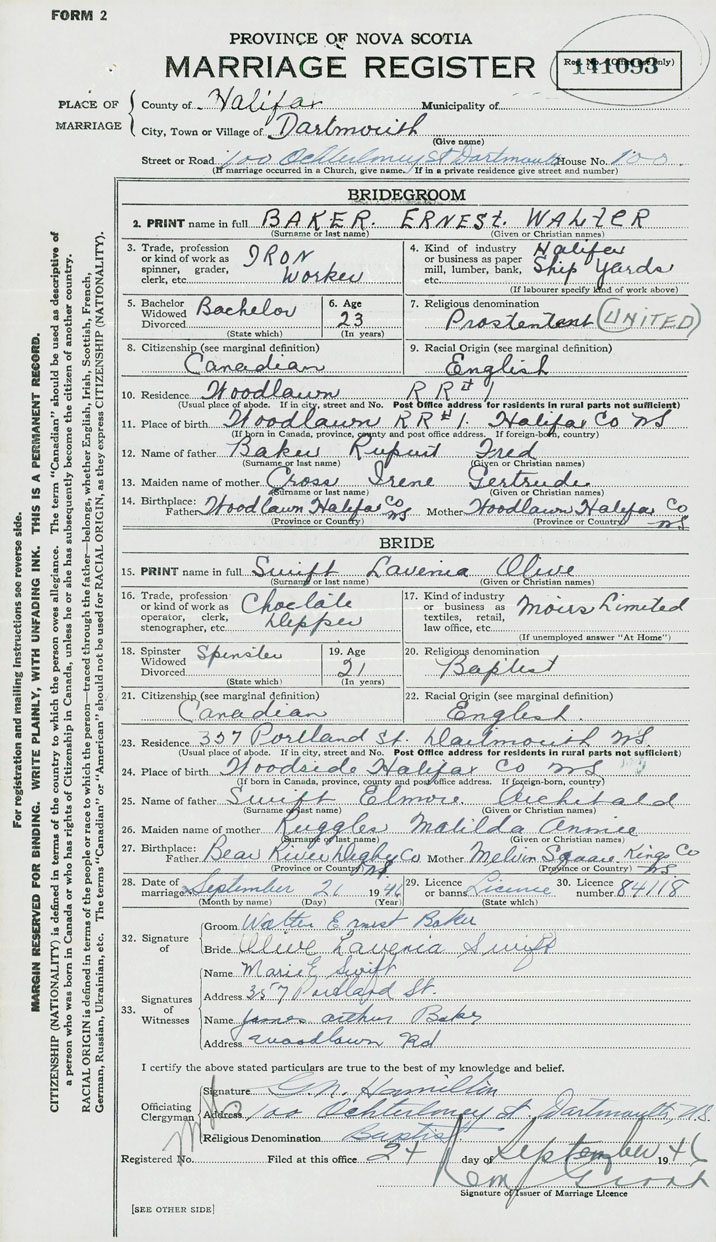 FORM 2
PROVINCE OF NOVA SCOTIA
MARRIAGE REGISTER
Reg. No. (Office use only)
141093
PLACE OF MARRIAGE
County of Halifax Municipality of
City, Town or Village of Dartmouth
(Give name)
Street or Road 100 Ochterloney St Dartmouth House No. 100
(If marriage occurred in a Church, give name. If in a private residence give street and number)
BRIDEGROOM
2. PRINT name in full BAKER. ERNEST. WALTER
(Surname or last name) (Given or Christian names)
3. Trade, profession or kind of work as spinner, grader, clerk, etc. IRON Worker
4. Kind of industry or business as paper mill, lumber, bank, etc. Halifax Ship Yards
(If labourer specify kind of work above)
5. Bachelor Widowed Divorced Bachelor
(State which)
6. Age 23
(In years)
7. Religious denomination
Prostentent (UNITED)
8. Citizenship (see marginal definition)
Canadian
9. Racial Origin (see marginal definition)
English
10. Residence Woodlawn RR#1
(Usual place of abode. If in city, street and No. Post Office address for residents in rural parts not sufficient)
11. Place of birth Woodlawn RR#1. Halifax Co NS
(If born in Canada, province, county and post office address. If foreign-born, country)
12. Name of father Baker Rupurt Fred
(Surname or last name) (Given or Christian names)
13. Maiden name of mother Cross Irene Gertrude
(Surname or last name) (Given or Christian names)
14. Birthplace: Father Woodlawn Halifax Co NS Mother Woodlawn Halifax Co NS
(Province or Country) (Province or Country)
BRIDE
15. PRINT name in full Swift Lavenia Olive
(Surname or last name) (Given or Christian names)
16. Trade, profession or kind of work as operator, clerk, stenographer, etc. Choclate Depper
17. Kind of industry or business as textiles, retail, law office, etc. Moirs Limited
(If unemployed answer "At Home")
18. Spinster Widowed Divorced Spinster
(State which)
19. Age 21
(In years)
20. Religious denomination
Baptist
21. Citizenship (see marginal definition)
Canadian
22. Racial Origin (see marginal definition)
English.
23. Residence 357 Portland St. Dartmouth NS.
(Usual place of abode. If in city, street and No. Post Office address for residents in rural parts not sufficient)
24. Place of birth Woodside Halifax Co NS
(If born in Canada, province, county and post office address. If foreign-born, country)
25. Name of father Swift Elmore Archibald
(Surname or last name) (Given or Christian names)
26. Maiden name of mother Ruggles Matilda Annie
(Surname or last name) (Given or Christian names)
27. Birthplace: Father Bear River Digby Co NS. Mother Melvin Square Kings Co NS
(Province or Country) (Province or Country)
28. Date of marriage September 21 1946
(Month by name) (Day) (Year)
29. Licence or banns License
(State which)
30. Licence number 84118
32. Signature of
Groom Walter Ernest Baker
Bride Olive Lavenia Swift
33. Signatures of Witnesses
Name Marie E Swift
Address 357 Portland St.
Name James Arthur Baker
Address Woodlawn Rd
I certify the above stated particulars are true to the best of my knowledge and belief.
Officiating Clergyman
Signature G. N. Hamilton
Address 100 Ochterloney St Dartmouth, N.S.
Religious Denomination Baptist
Registered No. Filed at this office 24 day of September 1946
Signature of Issuer of Marriage Licence
[SEE OTHER SIDE]
For registration and mailing instructions see reverse side.
MARGIN RESERVED FOR BINDING. WRITE PLAINLY, WITH UNFADING INK. THIS IS A PERMANENT RECORD.
CITIZENSHIP (NATIONALITY) is defined in terms of the country to which the person owes allegiance. The term "Canadian" should be used as descriptive of
a person who was born in Canada or who has rights of Citizenship in Canada, unless he or she has subsequently become the citizen of another country.
RACIAL ORIGIN is defined in terms of the people or race to which the person—traced through the father—belongs, whether English, Irish, Scottish, French,
German, Russian, Ukrainian, etc. The terms "Canadian" or "American" should not be used for RACIAL ORIGIN, as they express CITIZENSHIP (NATIONALITY).